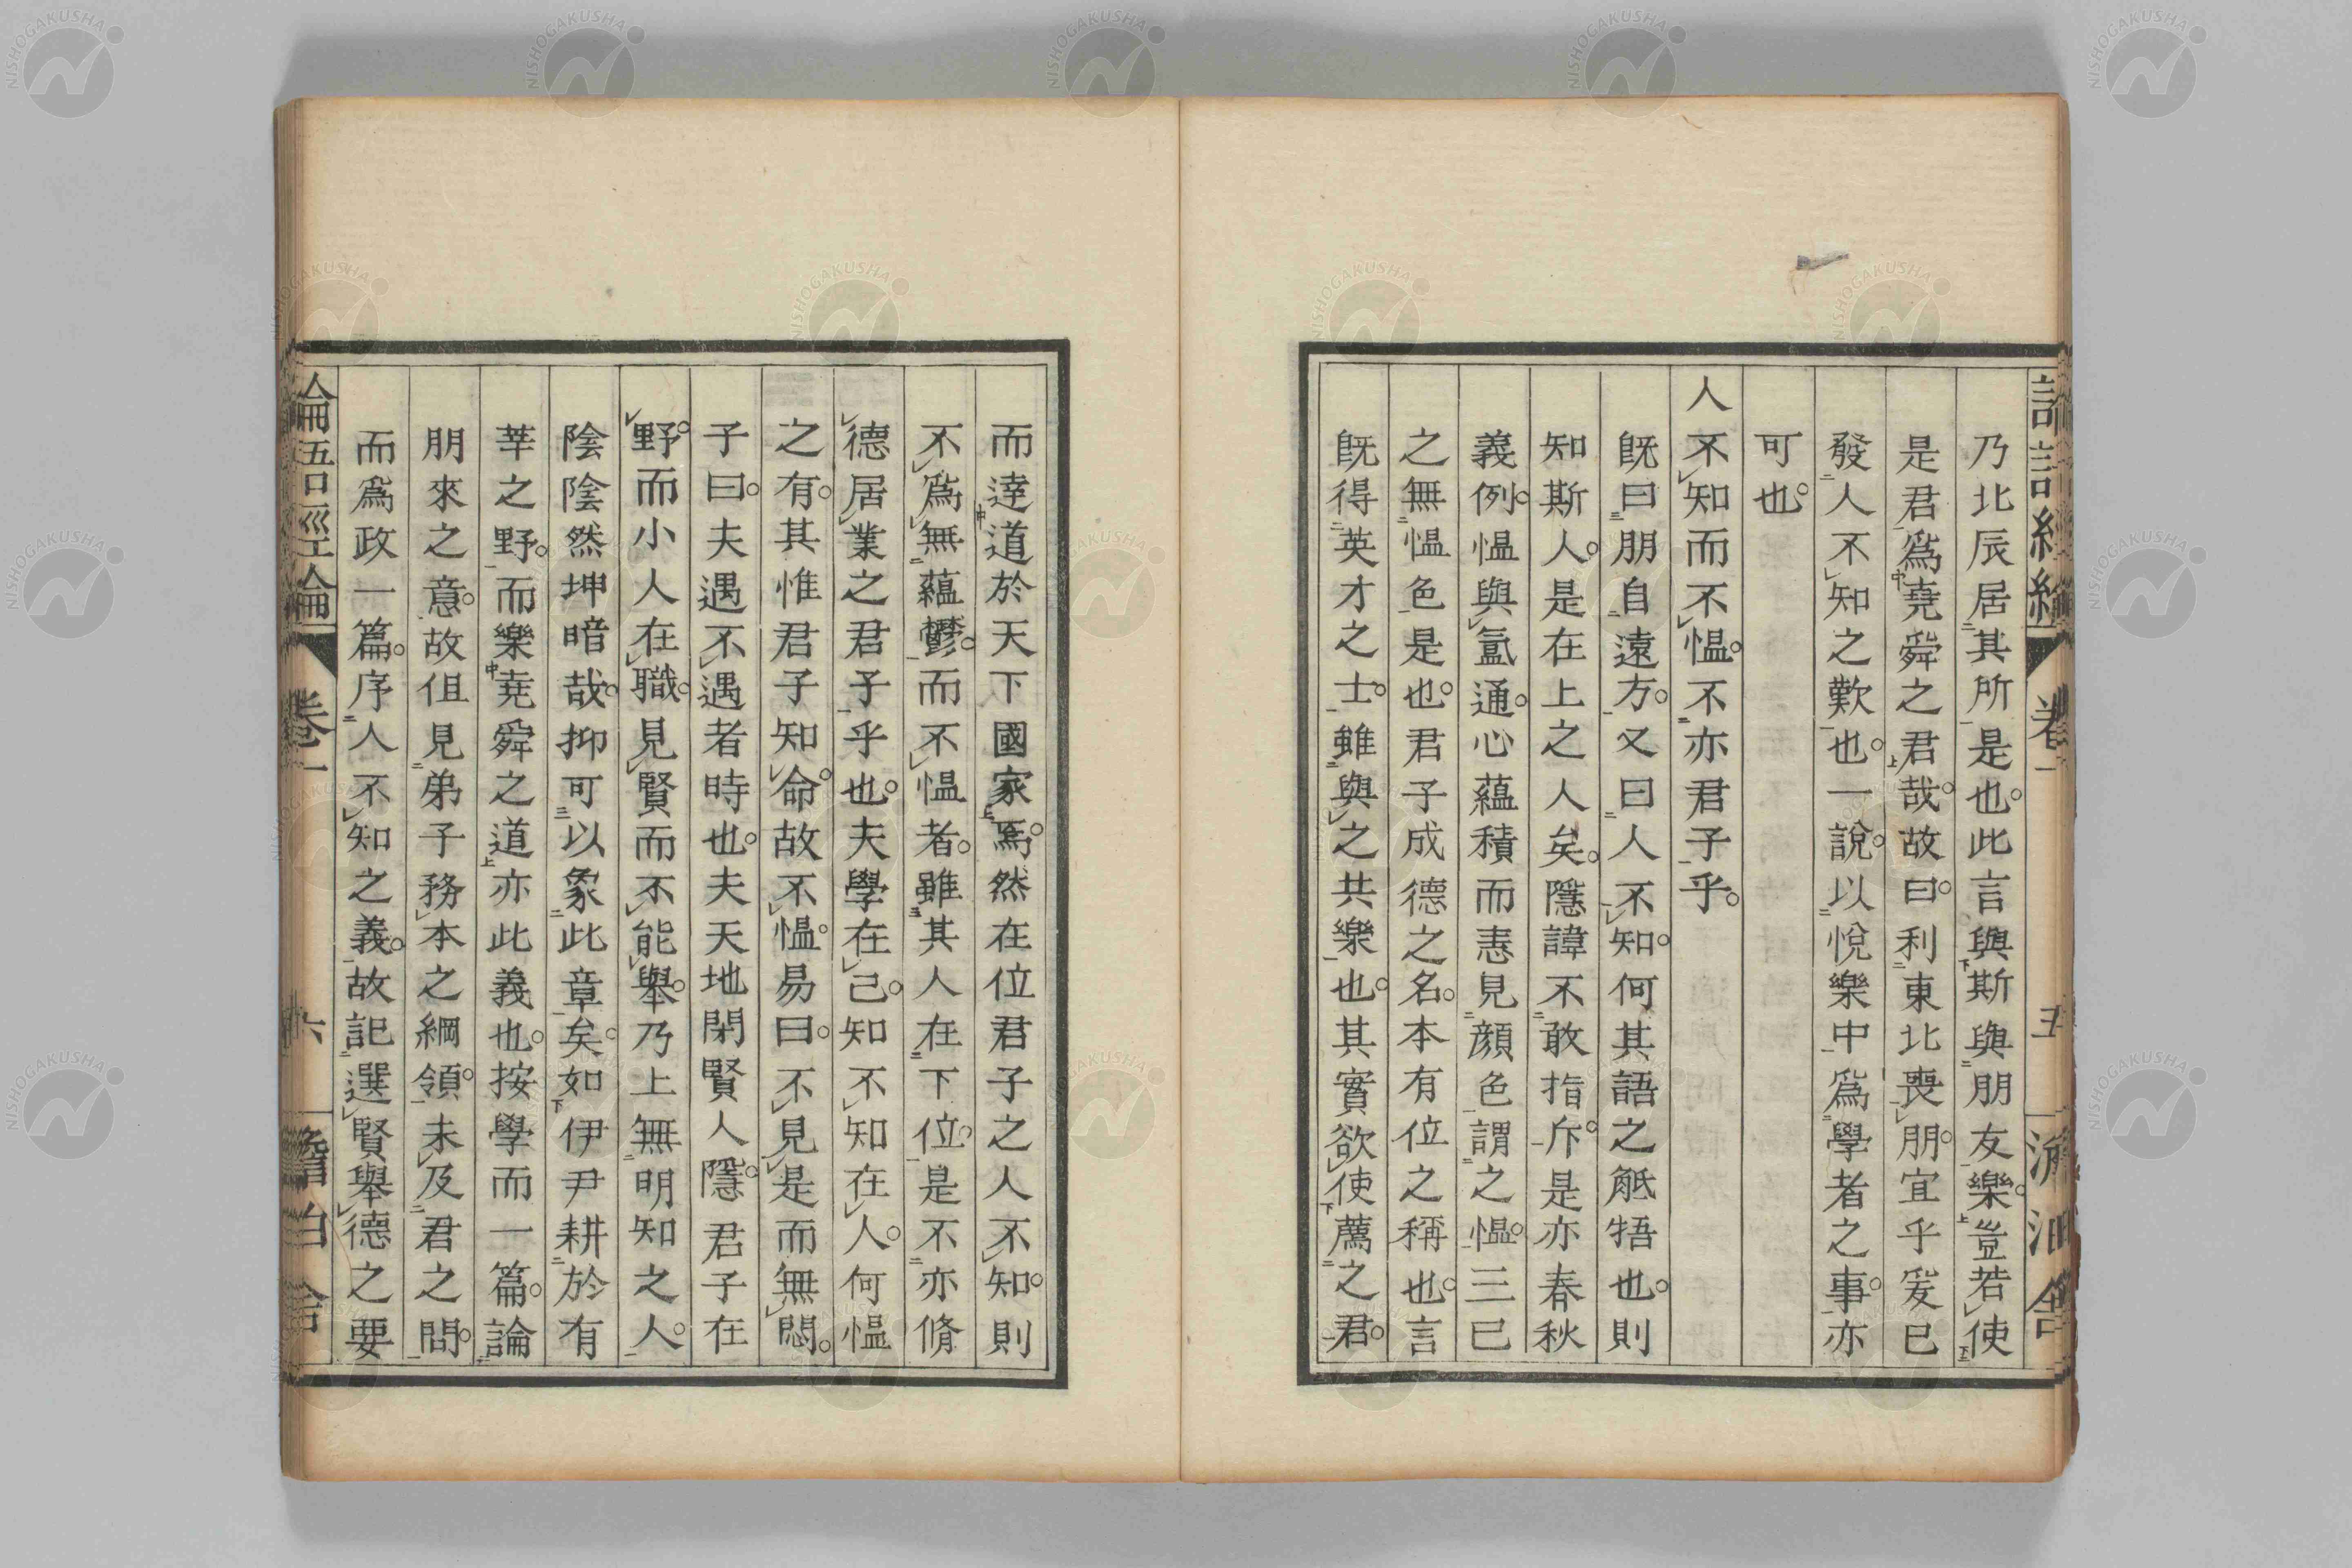 乃北辰居其所是也此言與斯與朋友樂豈若使
是君爲堯舜之君哉故曰利東北喪朋宜乎爰已
發人不知之歎也一說以悅樂中爲學者之事亦
可也
人不知而不慍不亦君子乎
既曰朋自遠方又曰人不知何其語之觝牾也則
知斯人是在上之人矣隱諱不敢指斥是亦春秋
義例慍與氲通心蘊積而恚見顏色謂之慍三已
之無慍色是也君子成德之名本有位之稱也言
既得英才之士雖與之共樂也其實欲使薦之君
而達道於天下國家焉然在位君子之人不知則
不爲無蘊鬱而不慍者雖其人在下位是不亦脩
德居業之君子乎也夫學在己知不知在人何慍
之有其惟君子知命故不慍易曰不見是而無悶
子曰夫遇不遇者時也夫天地閉賢人隱君子在
野而小人在職見賢而不能舉乃上無明知之人
陰陰然坤暗哉抑可以象此章矣如伊尹耕於有
莘之野而樂堯舜之道亦此義也按學而一篇論
朋來之意故但見弟子務本之綱領未及君之問
而爲政一篇序人不知之義故記選賢舉德之要
論語經綸 卷一 六